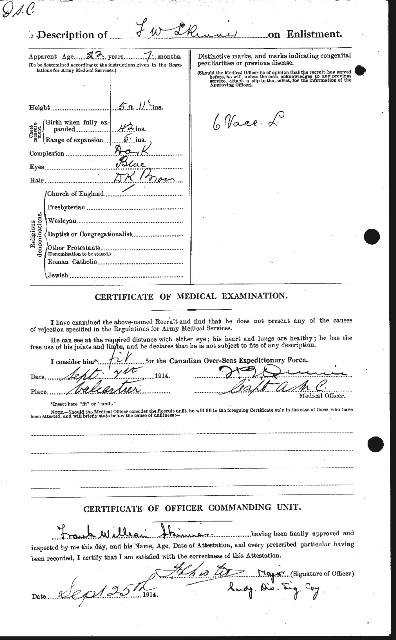 Description of F W Skinner on Enlistment.
Apparent Age 23 years 7 months.
(To be determined according to the instructions given in the Regulations for Army Medical Services.)
Distinctive marks, and marks indicating congenital
peculiarities or previous disease.
(Should the Medical Officer be of opinion that the recruit has served
before, he will, unless the man acknowledges to any previous
service, attach a slip to that effect, for the information of the
Approving Officer).
Height 5 ft 11½ ins.
Chest measurement
Girth when fully expanded 42 ins.
Range of expansion 5 ins.
6 Vacc. L
Complexion Dark
Eyes Blue
Hair DK Brown
Religious denominations.
Church of England
Presbyterian
Wesleyan
Baptist or Congregationalist
Other Protestants
(Denomination to be stated.)
Roman Catholic
Jewish
CERTIFICATE OF MEDICAL EXAMINATION.
I have examined the above-named Recruit and find that he does not present any of the causes
of rejection specified in the Regulations for Army Medical Services.
He can see at the required distance with either eye; his heart and lungs are healthy; he has the
free use of his joints and limbs, and he declares that he is not subject to fits of any description.
I consider him* fit for the Canadian Over-Seas Expeditionary Force.
Date Sept 7th 1914.
Place Valcartier Capt A.M.C.
Medical Officer.
*Insert here "fit" or "unfit."
NOTE.—Should the Medical Officer consider the Recruit unfit, he will fill in the foregoing Certificate only in the case of those who have
been attested, and will briefly state below the cause of unfitness:—
CERTIFICATE OF OFFICER COMMANDING UNIT.
Frank William Skinner having been finally approved and
inspected by me this day, and his Name, Age, Date of Attestation, and every prescribed particular having
been recorded, I certify that I am satisfied with the correctness of this Attestation.
Major (Signature of Officer)
Date Sept 25th 1914.